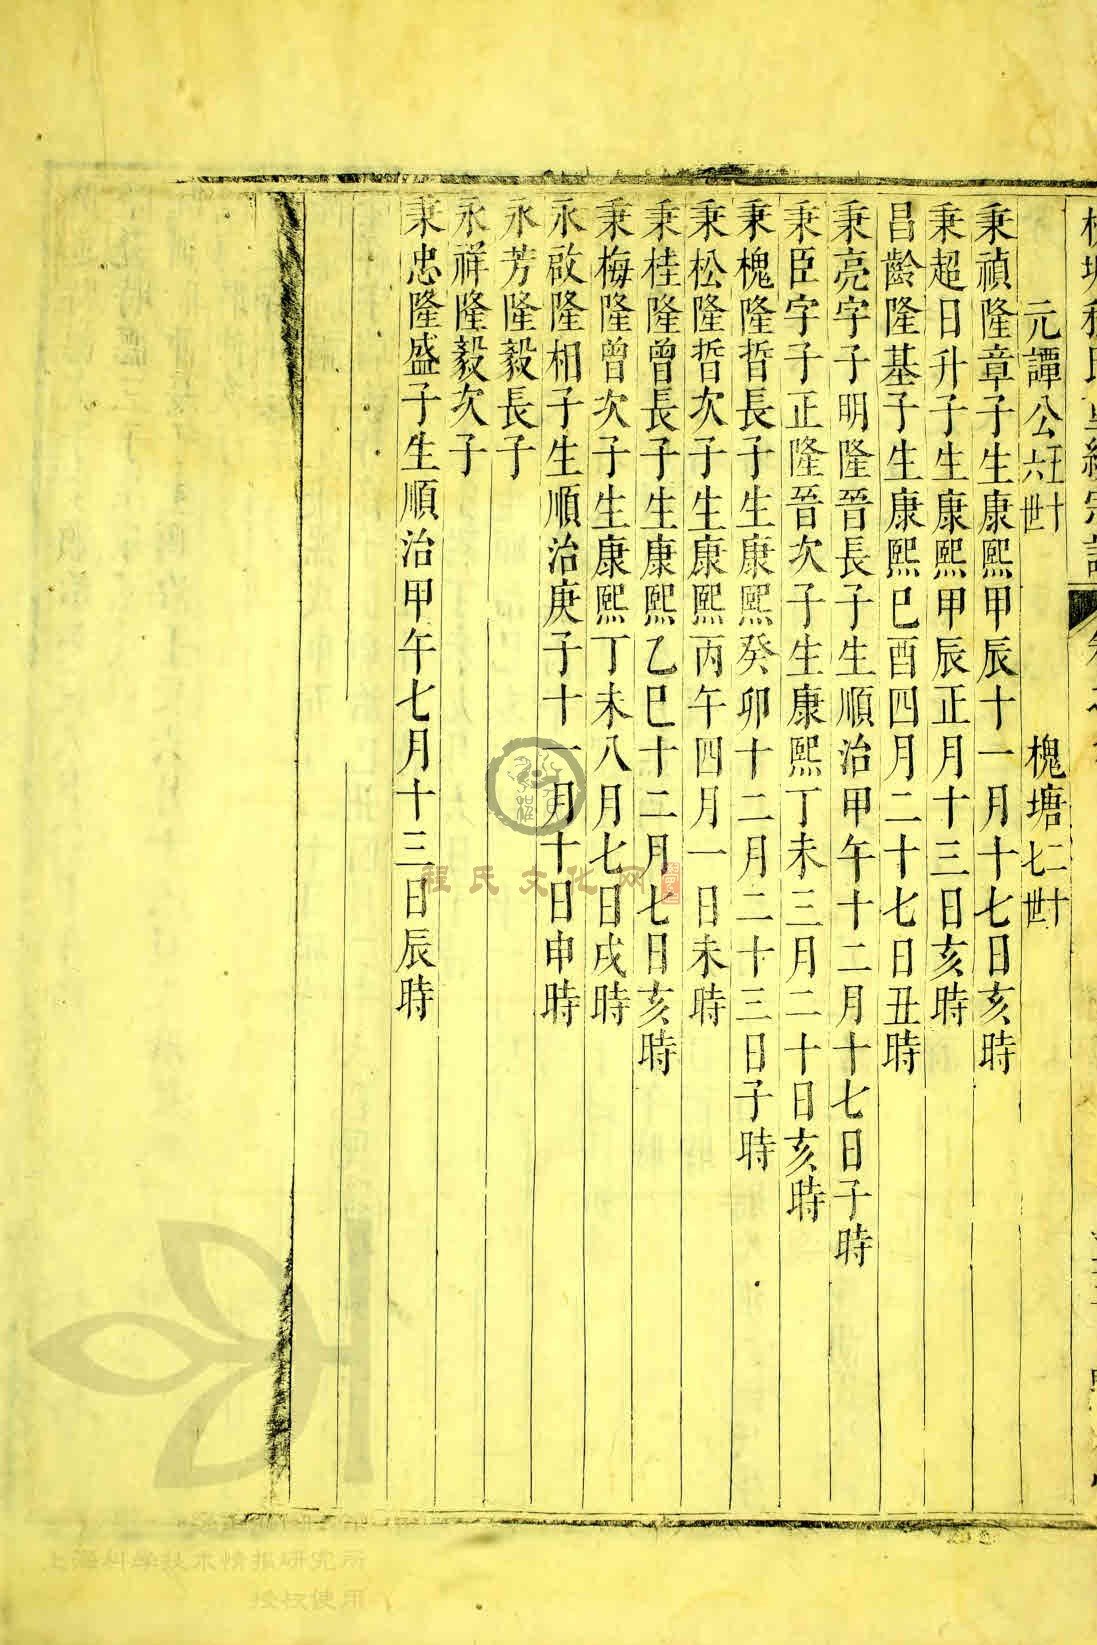 元譚公六十五世　槐塘二十七世
秉禎隆章子生康熙甲辰十一月十七日亥時
秉超日升子生康熙甲辰正月十三日亥時
昌齡隆基子生康熙己酉四月二十七日丑時
秉亮字子明隆晉長子生順治甲午十二月十七日子時
秉臣字子正隆晉次子生康熙丁未三月二十日亥時
秉槐隆晢長子生康熙癸卯十二月二十三日子時
秉松隆晢次子生康熙丙午四月一日未時
秉桂隆曾長子生康熙乙巳十二月七日亥時
秉梅隆曾次子生康熙丁未八月七日戌時
永啟隆相子生順治庚子十一月十日申時
永芳隆毅長子
永祥隆毅次子
秉忠隆盛子生順治甲午七月十三日辰時
程氏文化网
上海科学技术情报研究所
授权使用